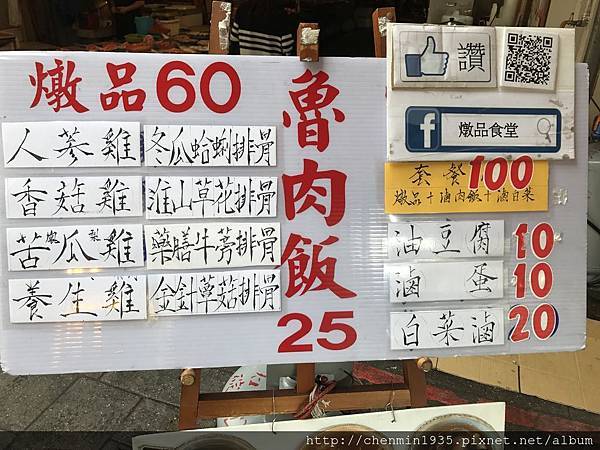 燉品60
人蔘雞
冬瓜蛤蜊排骨
香菇雞
淮山草花排骨
苦瓜雞
藥膳牛蒡排骨
養生雞
金針蘑菇排骨
魯肉飯
25
讚
燉品食堂
套餐100
燉品+滷肉飯+滷白菜
油豆腐 10
滷蛋 10
白菜滷 20
http://chenmin1935.pixnet.net/album